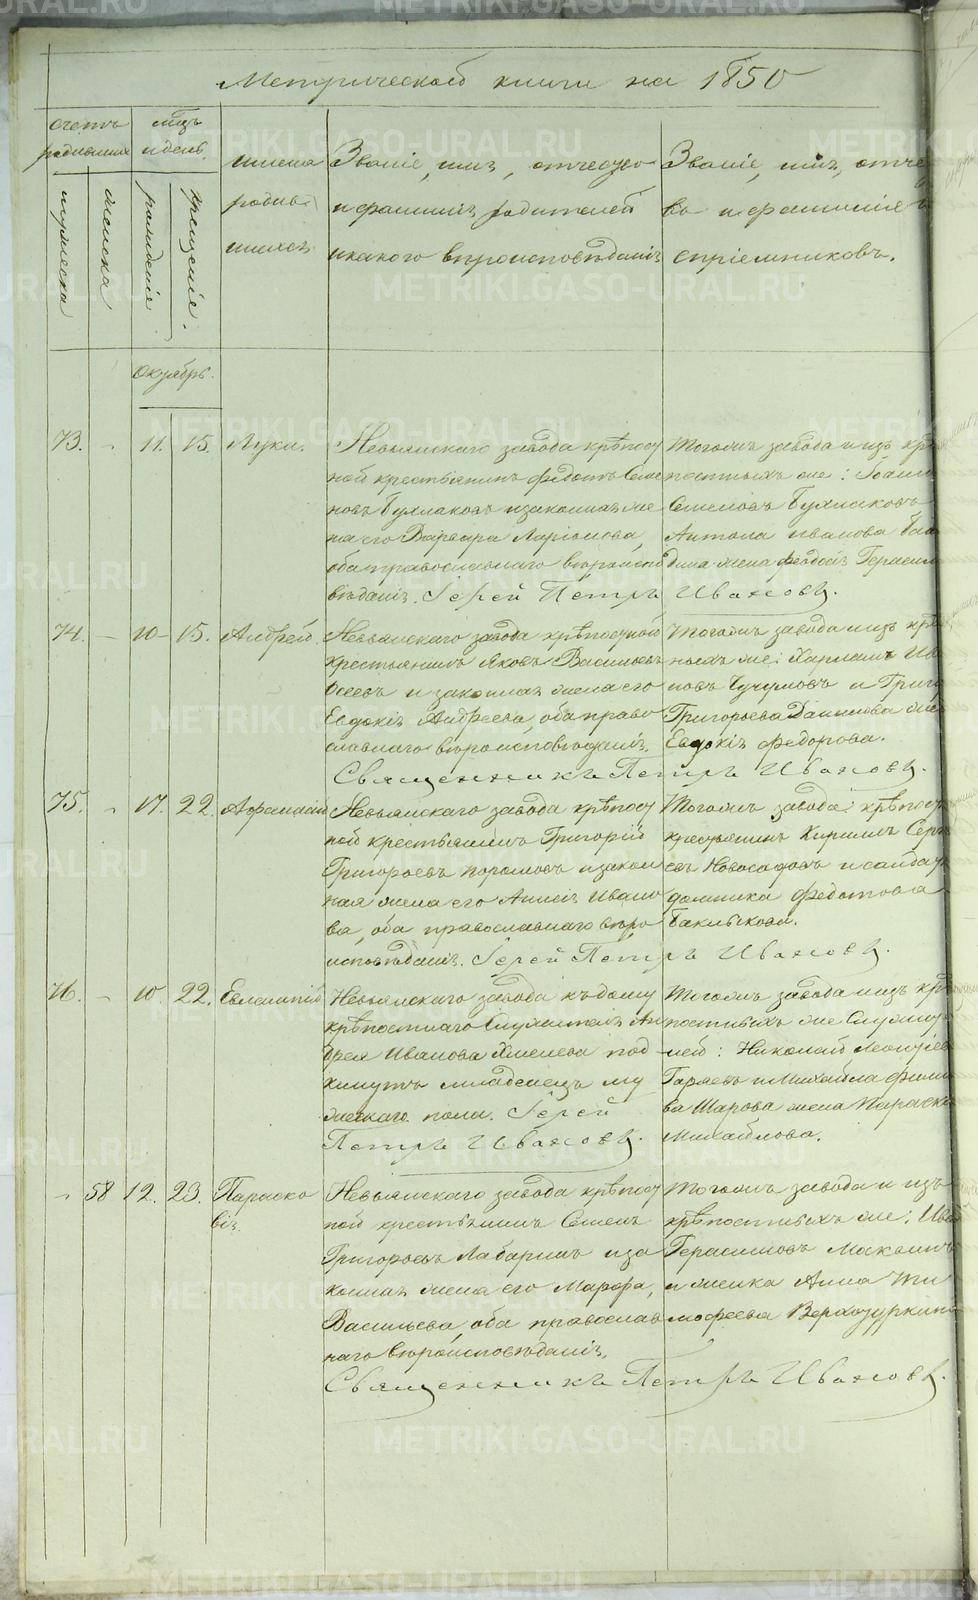 Метрической книги на 1850
счетъ родившихся
мужеска
женска
мѣсяцъ и день
рожденіе
крещеніе.
имена родившихся
Званіе, имя, отчество
и фамилія родителей
и какого вѣроисповѣданія
Званіе, имя, отче
во и фамилія
спріемниковъ.
Октябрь.
73. - 11. 15. Лука.
Невьянскаго завода крѣпост
ной крестьянинъ Федотъ Семе
новъ Бухлаковъ и законная же
на его Варвара Ларіонова,
оба православнаго вѣроиспо
вѣданія. Іерей Петръ Ивановъ.
Тогожъ завода и изъ крѣ
постныхъ же: Іоаннъ
Семеновъ Бухлаковъ
Антона Иванова
жена Феодосія Герасим
74. - 10 - 15. Андрей.
Невьянскаго завода крѣпостной
крестьянинъ Яковъ Васильевъ
и законная жена его
Евдокія Андреева, оба право
славнаго вѣроисповѣданія.
Священникъ Петръ Ивановъ.
Тогожъ завода и изъ крѣ
ныхъ же: Харламъ Ива
новъ и Григо
Григорьева Данилова же
Евдокія Федорова.
75. - 17. 22. Афанасій
Невьянскаго завода крѣпост
ной крестьянинъ Григорій
Григорьевъ и закон
ная жена его Анисія Ивано
ва, оба православнаго вѣро
исповѣданія. Іерей Петръ Ивановъ.
Тогожъ завода: крѣпост
крестьянинъ Кирилъ Серг
евъ Новосадовъ и солда
Федотова
76. - 10. 22. Евлампій
Невьянскаго завода къ дому
крѣпостнаго Служителя Ан
дрея Иванова под
кинутъ младенецъ му
жескаго пола. Іерей
Петръ Ивановъ.
Тогожъ завода и изъ крѣ
постныхъ же Служит
лей: Николай Леонтіев
и Михайла Фили
ва Шарова жена Параске
Михайлова.
- 58 12. 23. Параске
вія.
Невьянскаго завода крѣпост
ной крестьянинъ Семенъ
Григорьевъ Лабаринъ и за
конная жена его Марфа,
Васильева, оба православ
наго вѣроисповѣданія.
Священникъ Петръ Ивановъ.
Тогожъ завода и изъ
крѣпостныхъ же: Ива
Герасимовъ
и женка Анна Ти
мофеева
METRIKI.GASO-URAL.RU